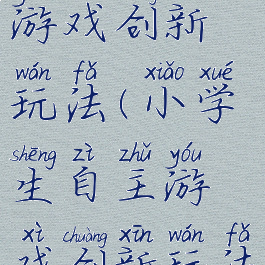 游戏创新
wán fǎ xiǎo xué
玩法(小学
shēng zì zhǔ yóu
生自主游
xì chuàng xīn wán fǎ
戏创新玩法